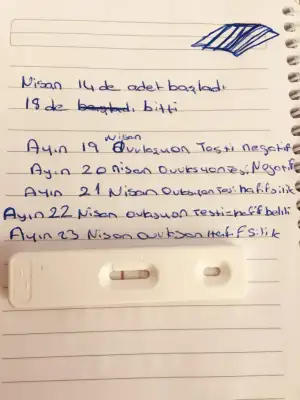 Nisan 14 de adet başladı
18 de başladı bitti
Ayın 19 Nisan Ovulasyon Testi negatif
Ayın 20 nisan Ovulasyon Negatif
Ayın 21 Nisan hafif silik
Ayın 22 Nisan testi hafif belli
Ayın 23 Nisan Hafif silik